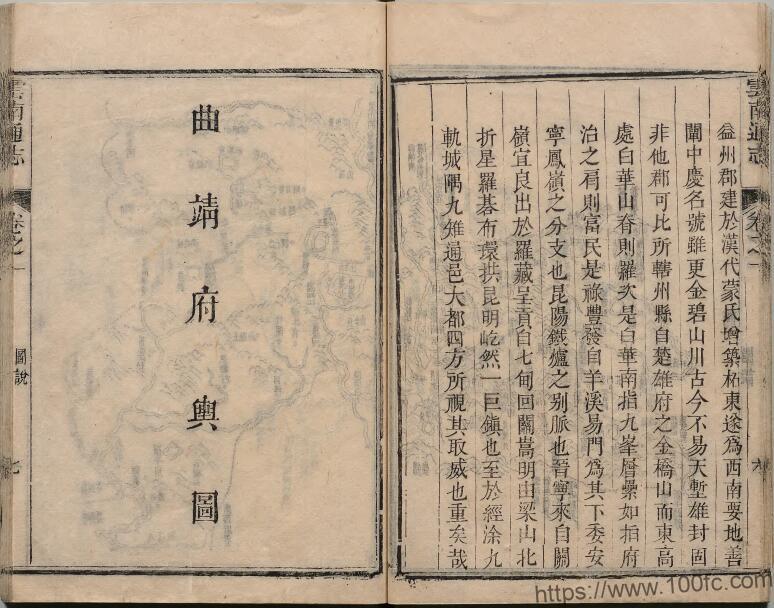 雲南通志
卷之一
六
益州郡建於漢代蒙氏增築柘東遂為西南要地善
闡中慶名號雖更金碧山川古今不易天塹雄封固
非他郡可比所轄州縣自楚雄府之金橋山而東高
處曰華山脊則羅次是白華南指九峯層疊如指府
治之肩則富民是祿豐發自羊溪易門為其下委安
寧鳳嶺之分支也昆陽鐵爐之别脈也晉寧來自關
嶺宜良出於羅藏呈貢自七甸回關嵩明由梁山北
折星羅碁布環拱昆明屹然一巨鎮也至於經涂九
軌城隅九雉通邑大都四方所視其取威也重矣哉
曲靖府輿圖
雲南通志
卷之一
圖說
七
https://www.100fc.com